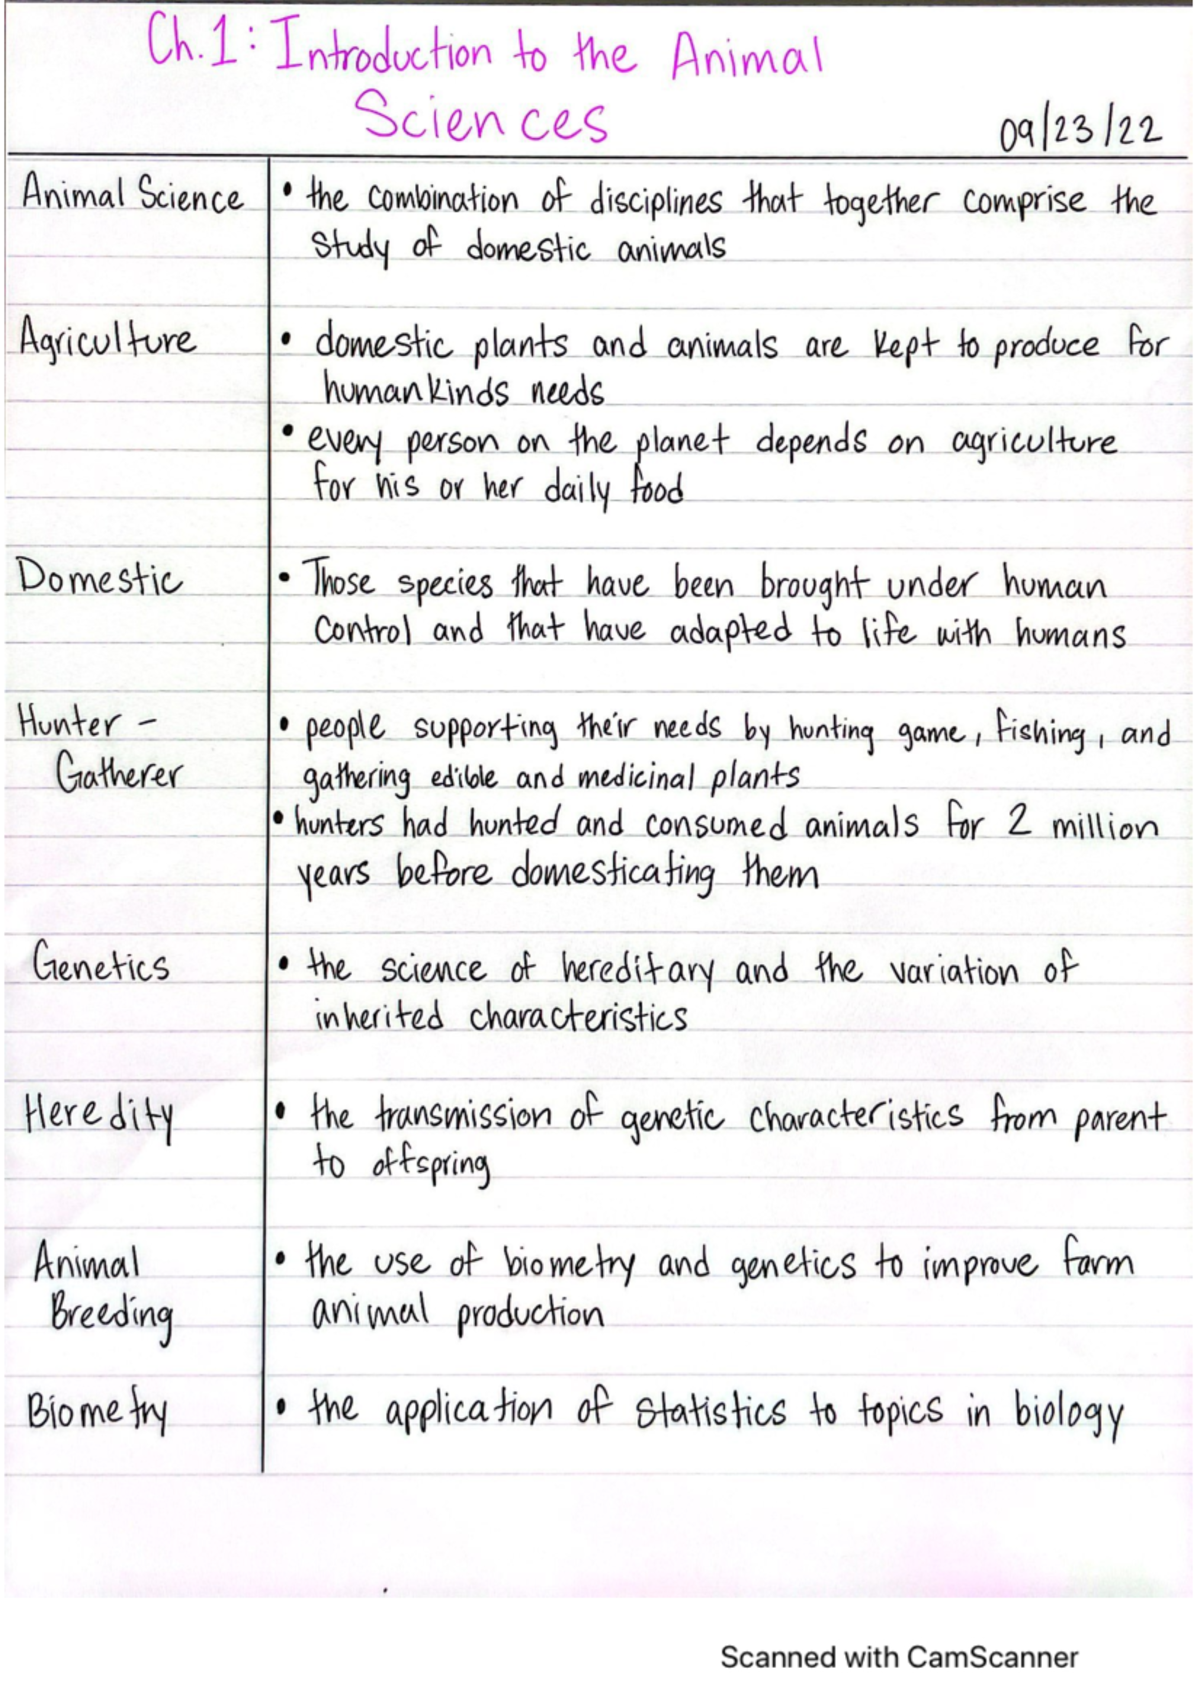 Ch.1: Introduction to the Animal
Sciences
09/23/22
Animal Science
• the combination of disciplines that together comprise the
study of domestic animals
Agriculture
• domestic plants and animals are kept to produce for
humankinds needs
• every person on the planet depends on agriculture
for his or her daily food
Domestic
• Those species that have been brought under human
control and that have adapted to life with humans
Hunter -
Gatherer
• people supporting their needs by hunting game, fishing, and
gathering edible and medicinal plants
• hunters had hunted and consumed animals for 2 million
years before domesticating them
Genetics
• the science of hereditary and the variation of
inherited characteristics
Heredity
• the transmission of genetic characteristics from parent
to offspring
Animal
Breeding
• the use of biometry and genetics to improve farm
animal production
Biometry
• the application of statistics to topics in biology
Scanned with CamScanner